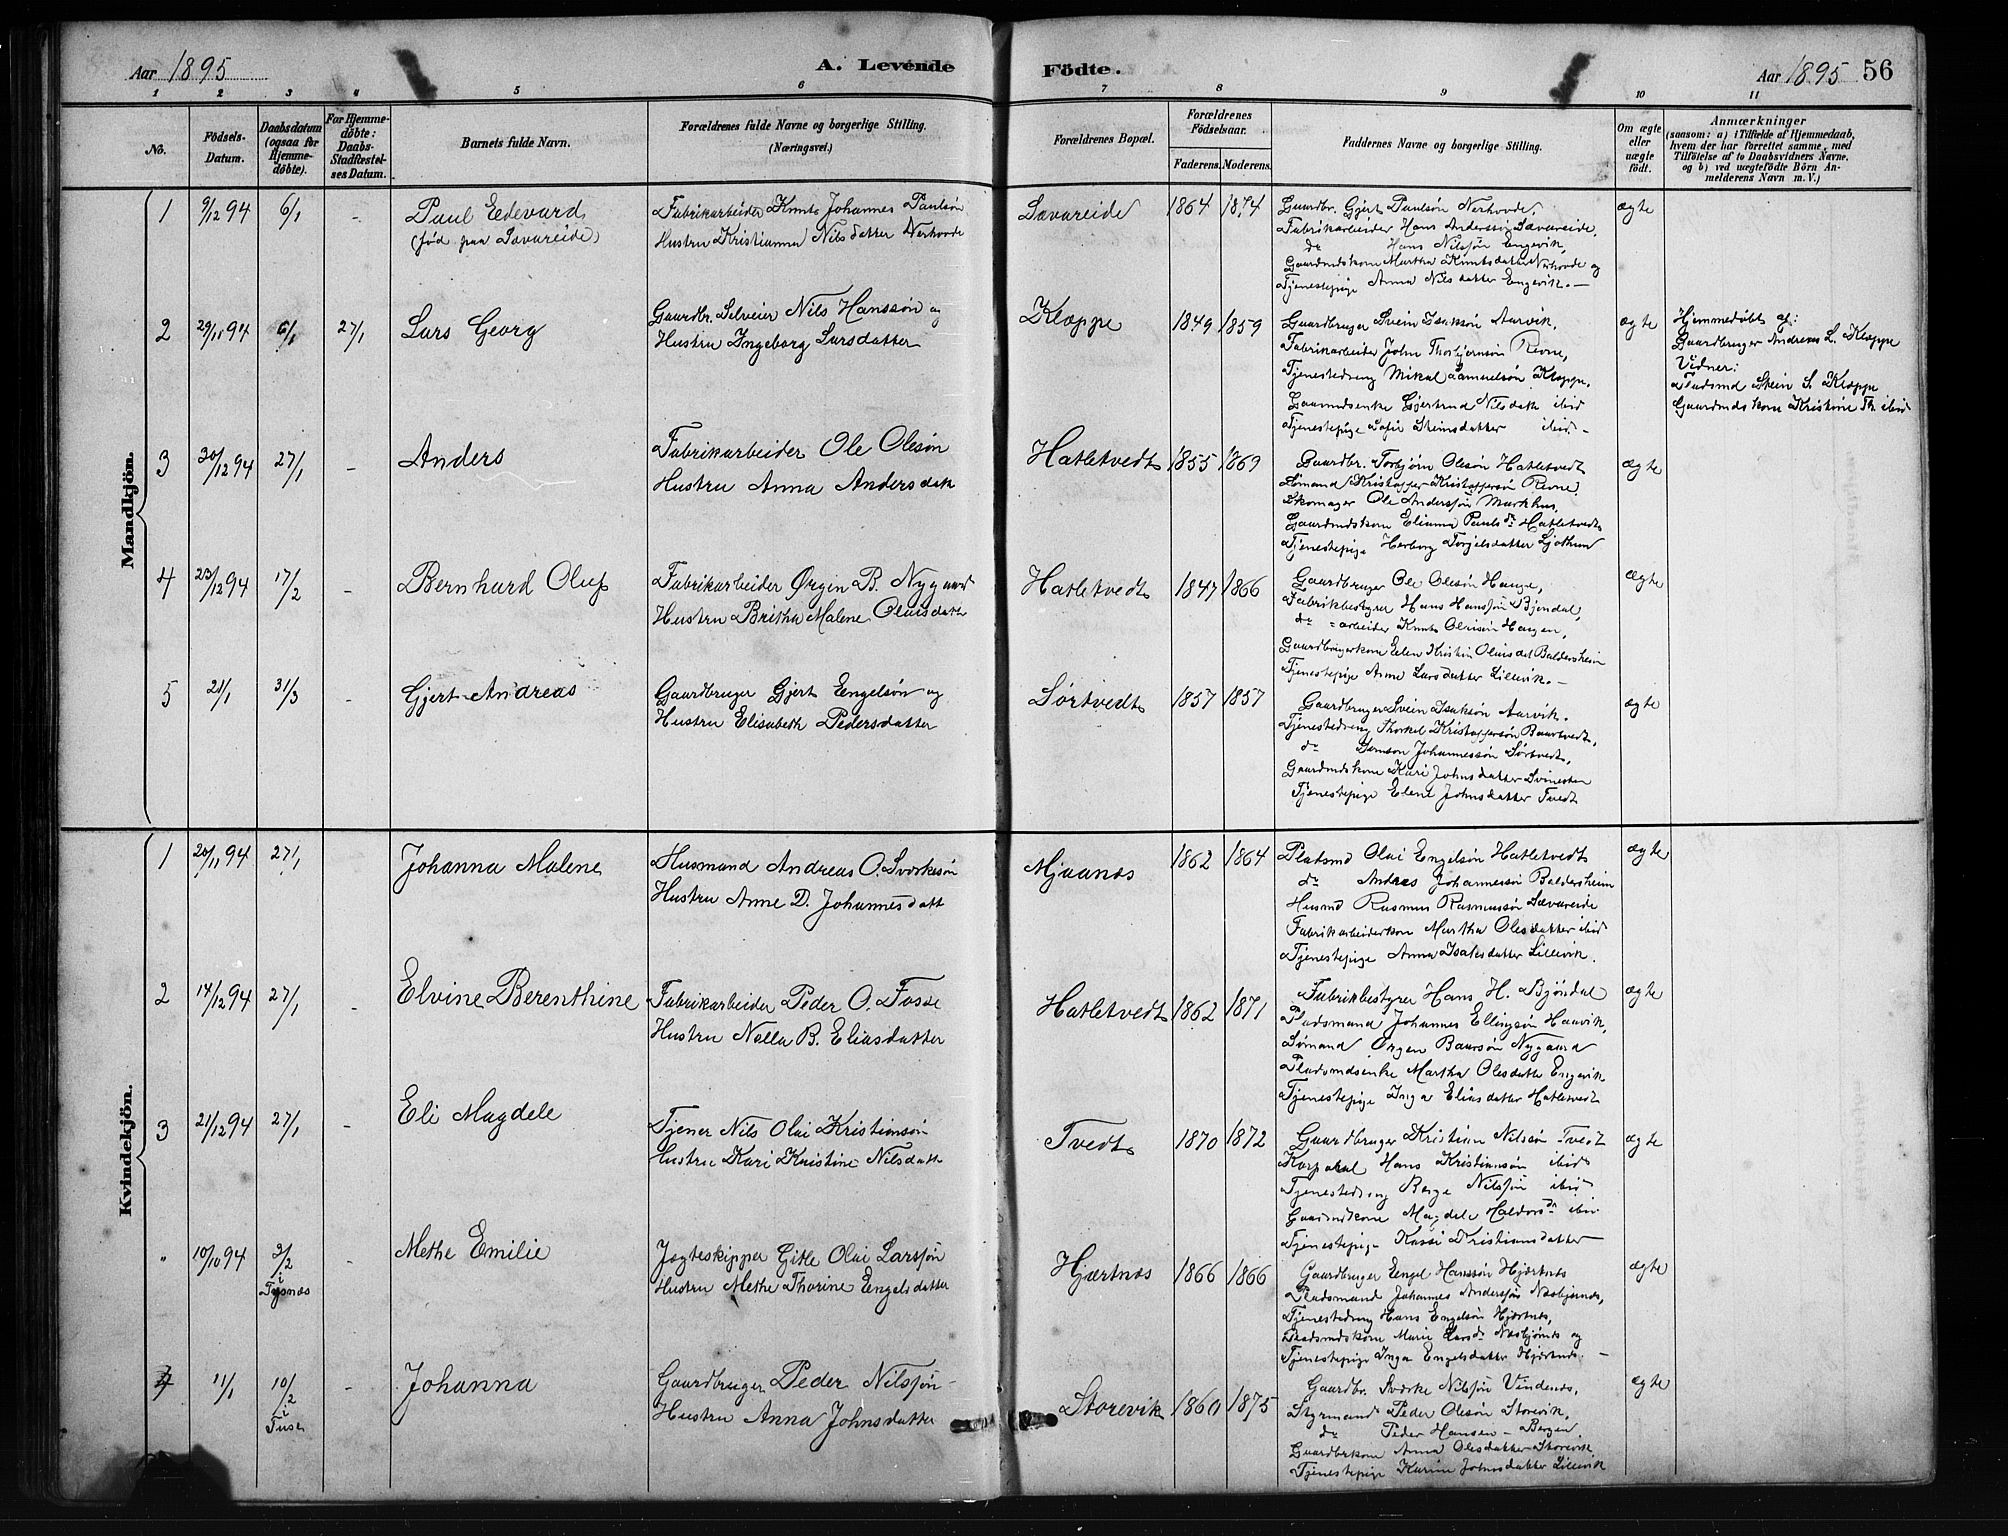 Aar 1895
A. Levende Födte.
Aar 1895 56
1 2 3 4 5 6 7 8 9 10 11
No.
Födsels-Datum.
Daabsdatum (ogsaa for Hjemme-döbte).
For Hjemme-döbte: Daabs-Stadfæstel-ses Datum.
Barnets fulde Navn.
Forældrenes fulde Navne og borgerlige Stilling.
(Næringsvei.)
Forældrenes Bopæl.
Forældrenes Födselsaar.
Faderens. Moderens.
Faddernes Navne og borgerlige Stilling.
Om ægte eller uægte födt.
Anmærkninger
(saasom: a) i Tilfælde af Hjemmedaab,
hvem der har forrettet samme, med
Tilföielse af to Daabsvidners Navne,
og b) ved uægtefödte Börn An-
melderens Navn m. V.)
Mandkjön.
1 9/12 94 6/1 - Paul Edevard
(fød paa Sævareide)
Fabrikarbeider Knut Johannes Paulsøn
Hustru Kristianna Nilsdatter Nerhovde
Sævareide 1864 1874
Gaardbr. Gjert Paulsøn Nerhovde,
Fabrikarbeider Hans Anderssøn Sævareide,
do Hans Nilsøn Engevik,
Gaardmdskone Martha Knutsdatter Nerhovde og
Tjenestepige Anna Nilsdatter Engevik.—
ægte
2 29/11 94 6/1 27/1 Lars Georg
Gaardbr. Selveier Nils Hanssøn og
Hustru Ingeborg Larsdatter
Kloppe 1849 1859
Gaardbruger Svein Isaksøn Aarvik,
Fabrikarbeider John Thorbjørnsøn Revne,
Tjenestedreng Mikal Samuelsøn Kloppe,
Gaardmdsenke Gjertrud Nilsdatt ibid
Tjenestepige Sofie Steinsdatter ibid.-
ægte
Hjemmedøbt af:
Gaardbruger Andreas L. Kloppe
Vidner:
Pladsmd Stein S. Kloppe
Gaardmdskone Kristine Th. ibid
3 30/12 94 27/1 - Anders
Fabrikarbeider Ole Olesøn
Hustru Anna Andersdatt
Hatletvedt 1855 1869
Gaardbr. Torbjørn Olesøn Hatletvedt
Sømand Kristoffer Kristoffersøn Revne,
Skomager Ole Anderssøn Markhus,
Gaardmdskone Elianna Pauls dr Hatletvedt
Tjenestepige Herborg Torjelsdatter Ljothun
ægte
4 23/12 94 17/2 - Bernhard Oluf
Fabrikarbeider Ørgin B. Nygaard
Hustru Britha Malene Olaisdatt
Hatletvedt 1847 1866
Gaardbruger Ole Olesøn Hauge,
Fabrikbestyrer Hans Hanssøn Bjøndal,
do = arbeider Knut Olaisøn Haugen,
Gaardbrugerkone Elen Kristin Olaisdat Baldersheim
Tjenestepige Anne Larsdatter Lillevik.—
ægte
5 21/1 31/3 - Gjert Andreas
Gaardbruger Gjert Engelsøn og
Hustru Elisabeth Pedersdatter
Sørtvedt 1857 1857
Gaardbruger Svein Isaksøn Aarvik.
Tjenestedreng Thorkel Kristoffersøn Baartvedt,
do Samson Johannessøn Sørtvedt,
Gaardmdskone Kari Johnsdatter Svinesten
Tjenestepige Elene Johnsdatter Tvedt
ægte
Kvindekjön.
1 20/11 94 27/1 Johanna Malene
Husmand Andreas O. Sværkesøn
Hustru Anne D. Johannesdatt
Mjaanæs 1862 1864
Pladsmd Olai Engelsøn Hatletvedt
do Andreas Johannessøn Baldersheim
Husmd Rasmus Rasmussøn Sævareide
Fabrikarbeiderkone Martha Olesdatter ibid
Tjenestepige Anna Isaksdatter Lillevik.
ægte
2 14/12 94 27/1 - Elvine Berenthine
Fabrikarbeider Peder O. Fosse
Hustru Nella B. Eliasdatter
Hatletvedt 1862 1871
Fabrikbestyrer Hans H. Bjøndal
Pladsmand Johannes Ellingsøn Haavik,
Sømand Ørgen Baarsøn Nygaard
Pladsmdsenke Martha Olesdatter Engevik
Tjenestepige Inga Eliasdatter Hatletvedt
ægte
3 21/12 94 27/1 - Eli Magdele
Tjener Nils Olai Kristiansøn
Hustru Kari Kristine Nilsdatt
Tvedt 1870 1872
Gaardbruger Kristian Nilssøn Tvedt
Korporal Hans Kristiansøn ibid
Tjenestedreng Børge Nilssøn ibid
Gaardmdkone Magdele Haldorsdr ibid
Tjenestepige Kari Kristiansdatter —
ægte
" 10/10 94 3/2 i Tysnæs - Methe Emilie
Jagteskipper Gitle Olai Larssøn
Hustru Methe Thorine Engelsdatter
Hjærtnæs 1866 1866
Gaardbruger Engel Hanssøn Hjærtnæs
Pladsmand Johannes Anderssøn Næsbjørnæs,
Tjenestedreng Hans Engelsøn Hjærtnæs,
Pladsmdskone Marie Larsdr Næsbjørnæs og
Tjenestepige Inga Engelsdatter Hjærtnæs. —
ægte
4 11/1 10/2 i Fuse - Johanna
Gaardbruger Peder Nilssøn-
Hustru Anna Johnsdatter
Storevik 1860 1875
Gaardbr. Sværke Nilssøn Vindenes,
Styrmand Peder Olesøn Storevik,
do Peder Hansen - Bergen,
Gaardbrkone Anna Olesdatter Storevik
Tjenestepige Karine Johnsdatter Lillevik
ægte